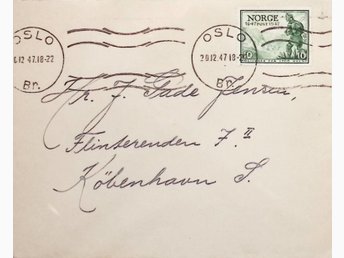 OSLO
OSLO
NORGE
1647 POST 1947
20.12.47.18-22
20.12.47.18-
Br.
Br.
10
Hr. J. Gade Jensen,
Flinterenden 7. II
København S.